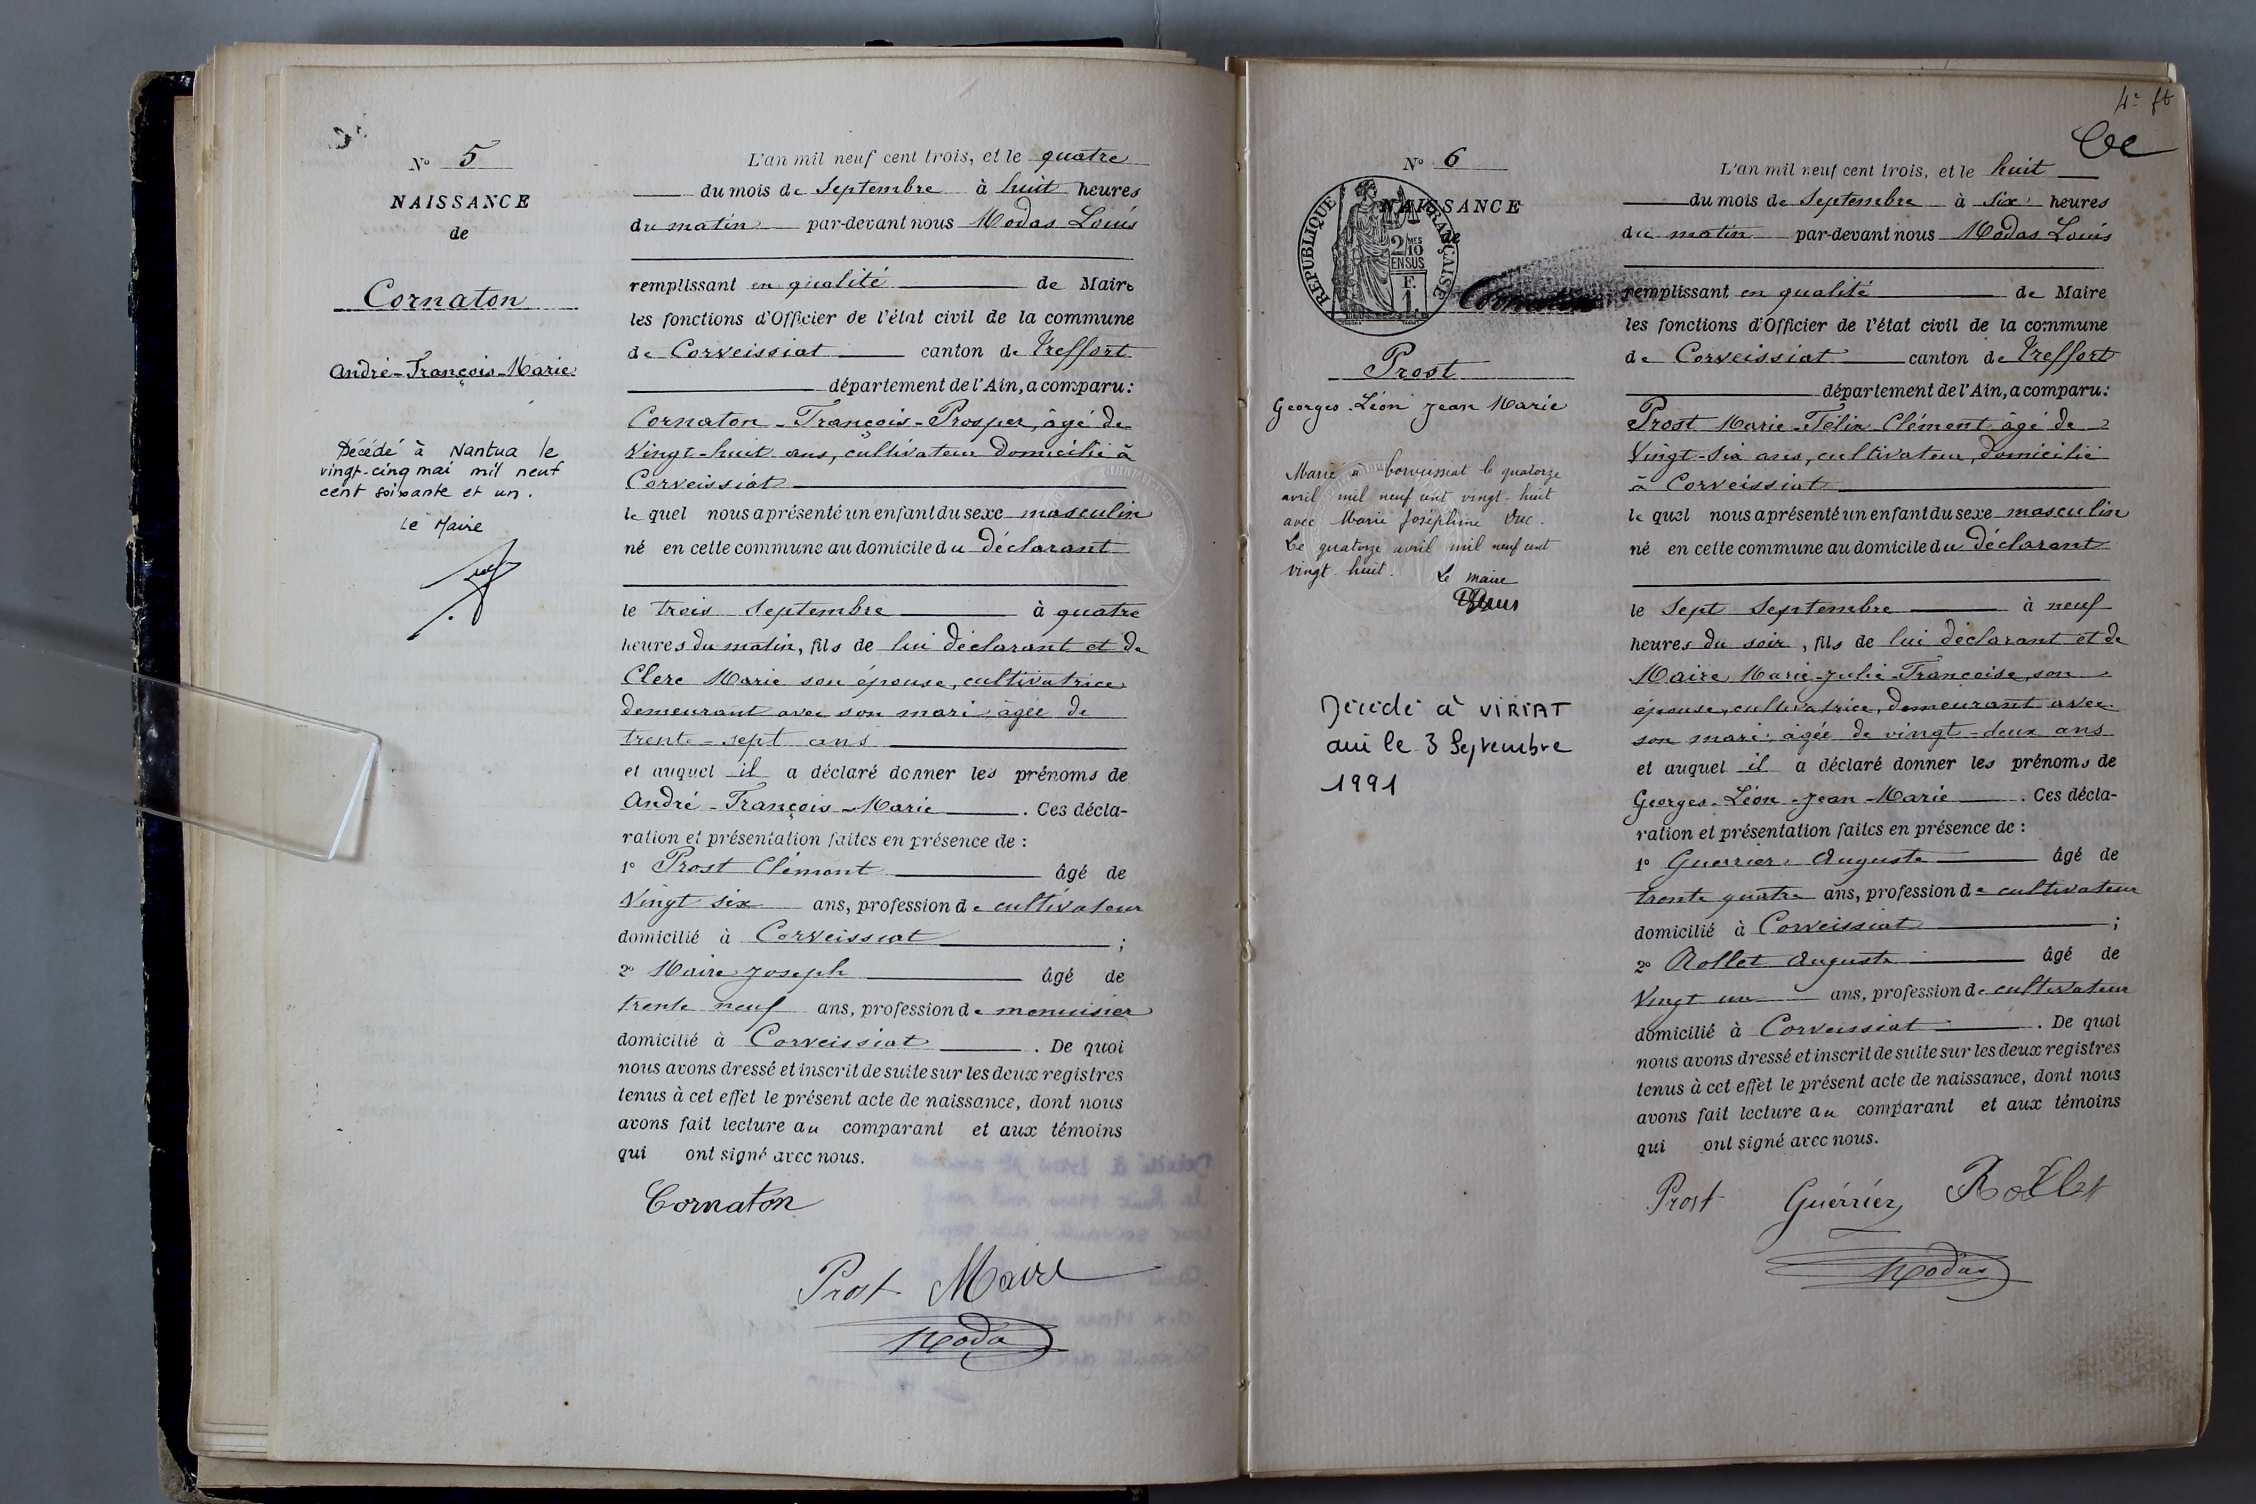 N° 5
NAISSANCE
de
Cornaton
André-François-Marie
Décédé à Nantua le
vingt-cinq mai mil neuf
cent soixante et un.
le Maire
L'an mil neuf cent trois, et le quatre
du mois de Septembre à huit heures
du matin par-devant nous Modas Louis
remplissant en qualité de Maire
les fonctions d'Officier de l'état civil de la commune
de Corveissiat canton de Treffort
département de l'Ain, a comparu:
Cornaton-François-Prosper, âgé de
Vingt-huit ans, cultivateur domicilié à
Corveissiat
le quel nous a présenté un enfant du sexe masculin
né en cette commune au domicile du déclarant
le trois Septembre à quatre
heures du matin, fils de lui déclarant et de
Clerc Marie son épouse, cultivatrice
demeurant avec son mari âgée de
trente-sept ans
et auquel il a déclaré donner les prénoms de
André-François-Marie. Ces décla-
ration et présentation faites en présence de :
1° Prost Clément âgé de
Vingt six ans, profession de cultivateur
domicilié à Corveissiat ;
2° Maire Joseph âgé de
trente neuf ans, profession de menuisier
domicilié à Corveissiat. De quoi
nous avons dressé et inscrit de suite sur les deux registres
tenus à cet effet le présent acte de naissance, dont nous
avons fait lecture au comparant et aux témoins
qui ont signé avec nous.
Cornaton
Prost Maire
Modas
4e ft
N° 6
NAISSANCE
de
RÉPUBLIQUE FRANÇAISE
2 MES
10
EN SUS
F.
1.
Cornaton
Prost
Georges-Léon Jean Marie
Marié à Corveissiat le quatorze
avril mil neuf cent vingt-huit
avec Marie Joséphine Duc.
Le quatorze avril mil neuf cent
vingt huit. Le maire
Décédé à VIRIAT
ain le 3 Septembre
1991
L'an mil neuf cent trois, et le huit
du mois de Septembre à six heures
du matin par-devant nous Modas Louis
remplissant en qualité de Maire
les fonctions d'Officier de l'état civil de la commune
de Corveissiat canton de Treffort
département de l'Ain, a comparu:
Prost Marie-Félix Clément âgé de
Vingt-six ans, cultivateur, domicilié
à Corveissiat
le quel nous a présenté un enfant du sexe masculin
né en cette commune au domicile du déclarant
le Sept Septembre à neuf
heures du soir, fils de lui déclarant et de
Maire Marie-Julie-Françoise, son
épouse, cultivatrice, demeurant avec
son mari âgée de vingt-deux ans
et auquel il a déclaré donner les prénoms de
Georges-Léon-Jean-Marie. Ces décla-
ration et présentation faites en présence de :
1° Guerrier Auguste âgé de
trente quatre ans, profession de cultivateur
domicilié à Corveissiat ;
2° Rollet Auguste âgé de
Vingt un ans, profession de cultivateur
domicilié à Corveissiat. De quoi
nous avons dressé et inscrit de suite sur les deux registres
tenus à cet effet le présent acte de naissance, dont nous
avons fait lecture au comparant et aux témoins
qui ont signé avec nous.
Prost Guérrier Rollet
Modas